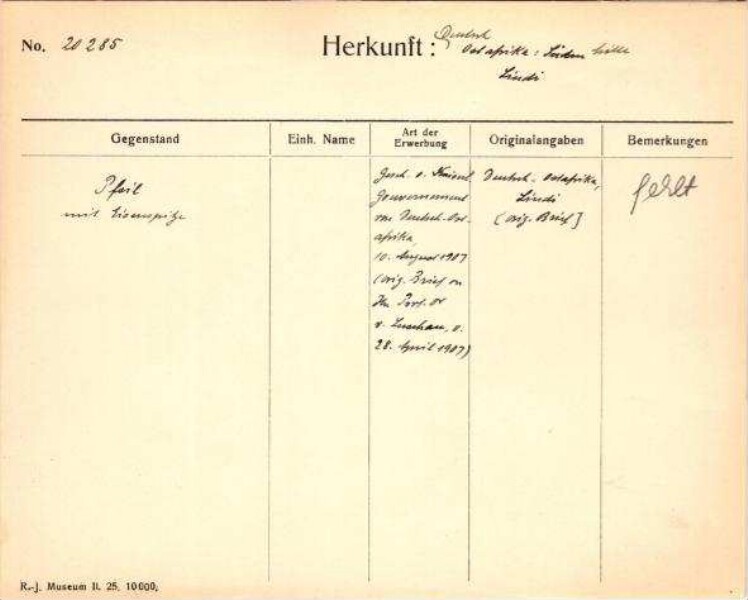 No. 20285
Herkunft: Deutsch
Ostafrika: Süden
Lindi
Gegenstand
Einh. Name
Art der
Erwerbung
Originalangaben
Bemerkungen
Pfeil
mit Eisenspitze
Gesch. v. Kaiserl.
Gouvernement
von Deutsch-Ost-
afrika,
10. August 1907
(orig. Brief an
Hn Prof. Dr
v. Luschan, v.
28. April 1907)
Deutsch-Ostafrika,
Lindi
(orig. Brief]
fehlt
R.-J. Museum II. 25. 10000.